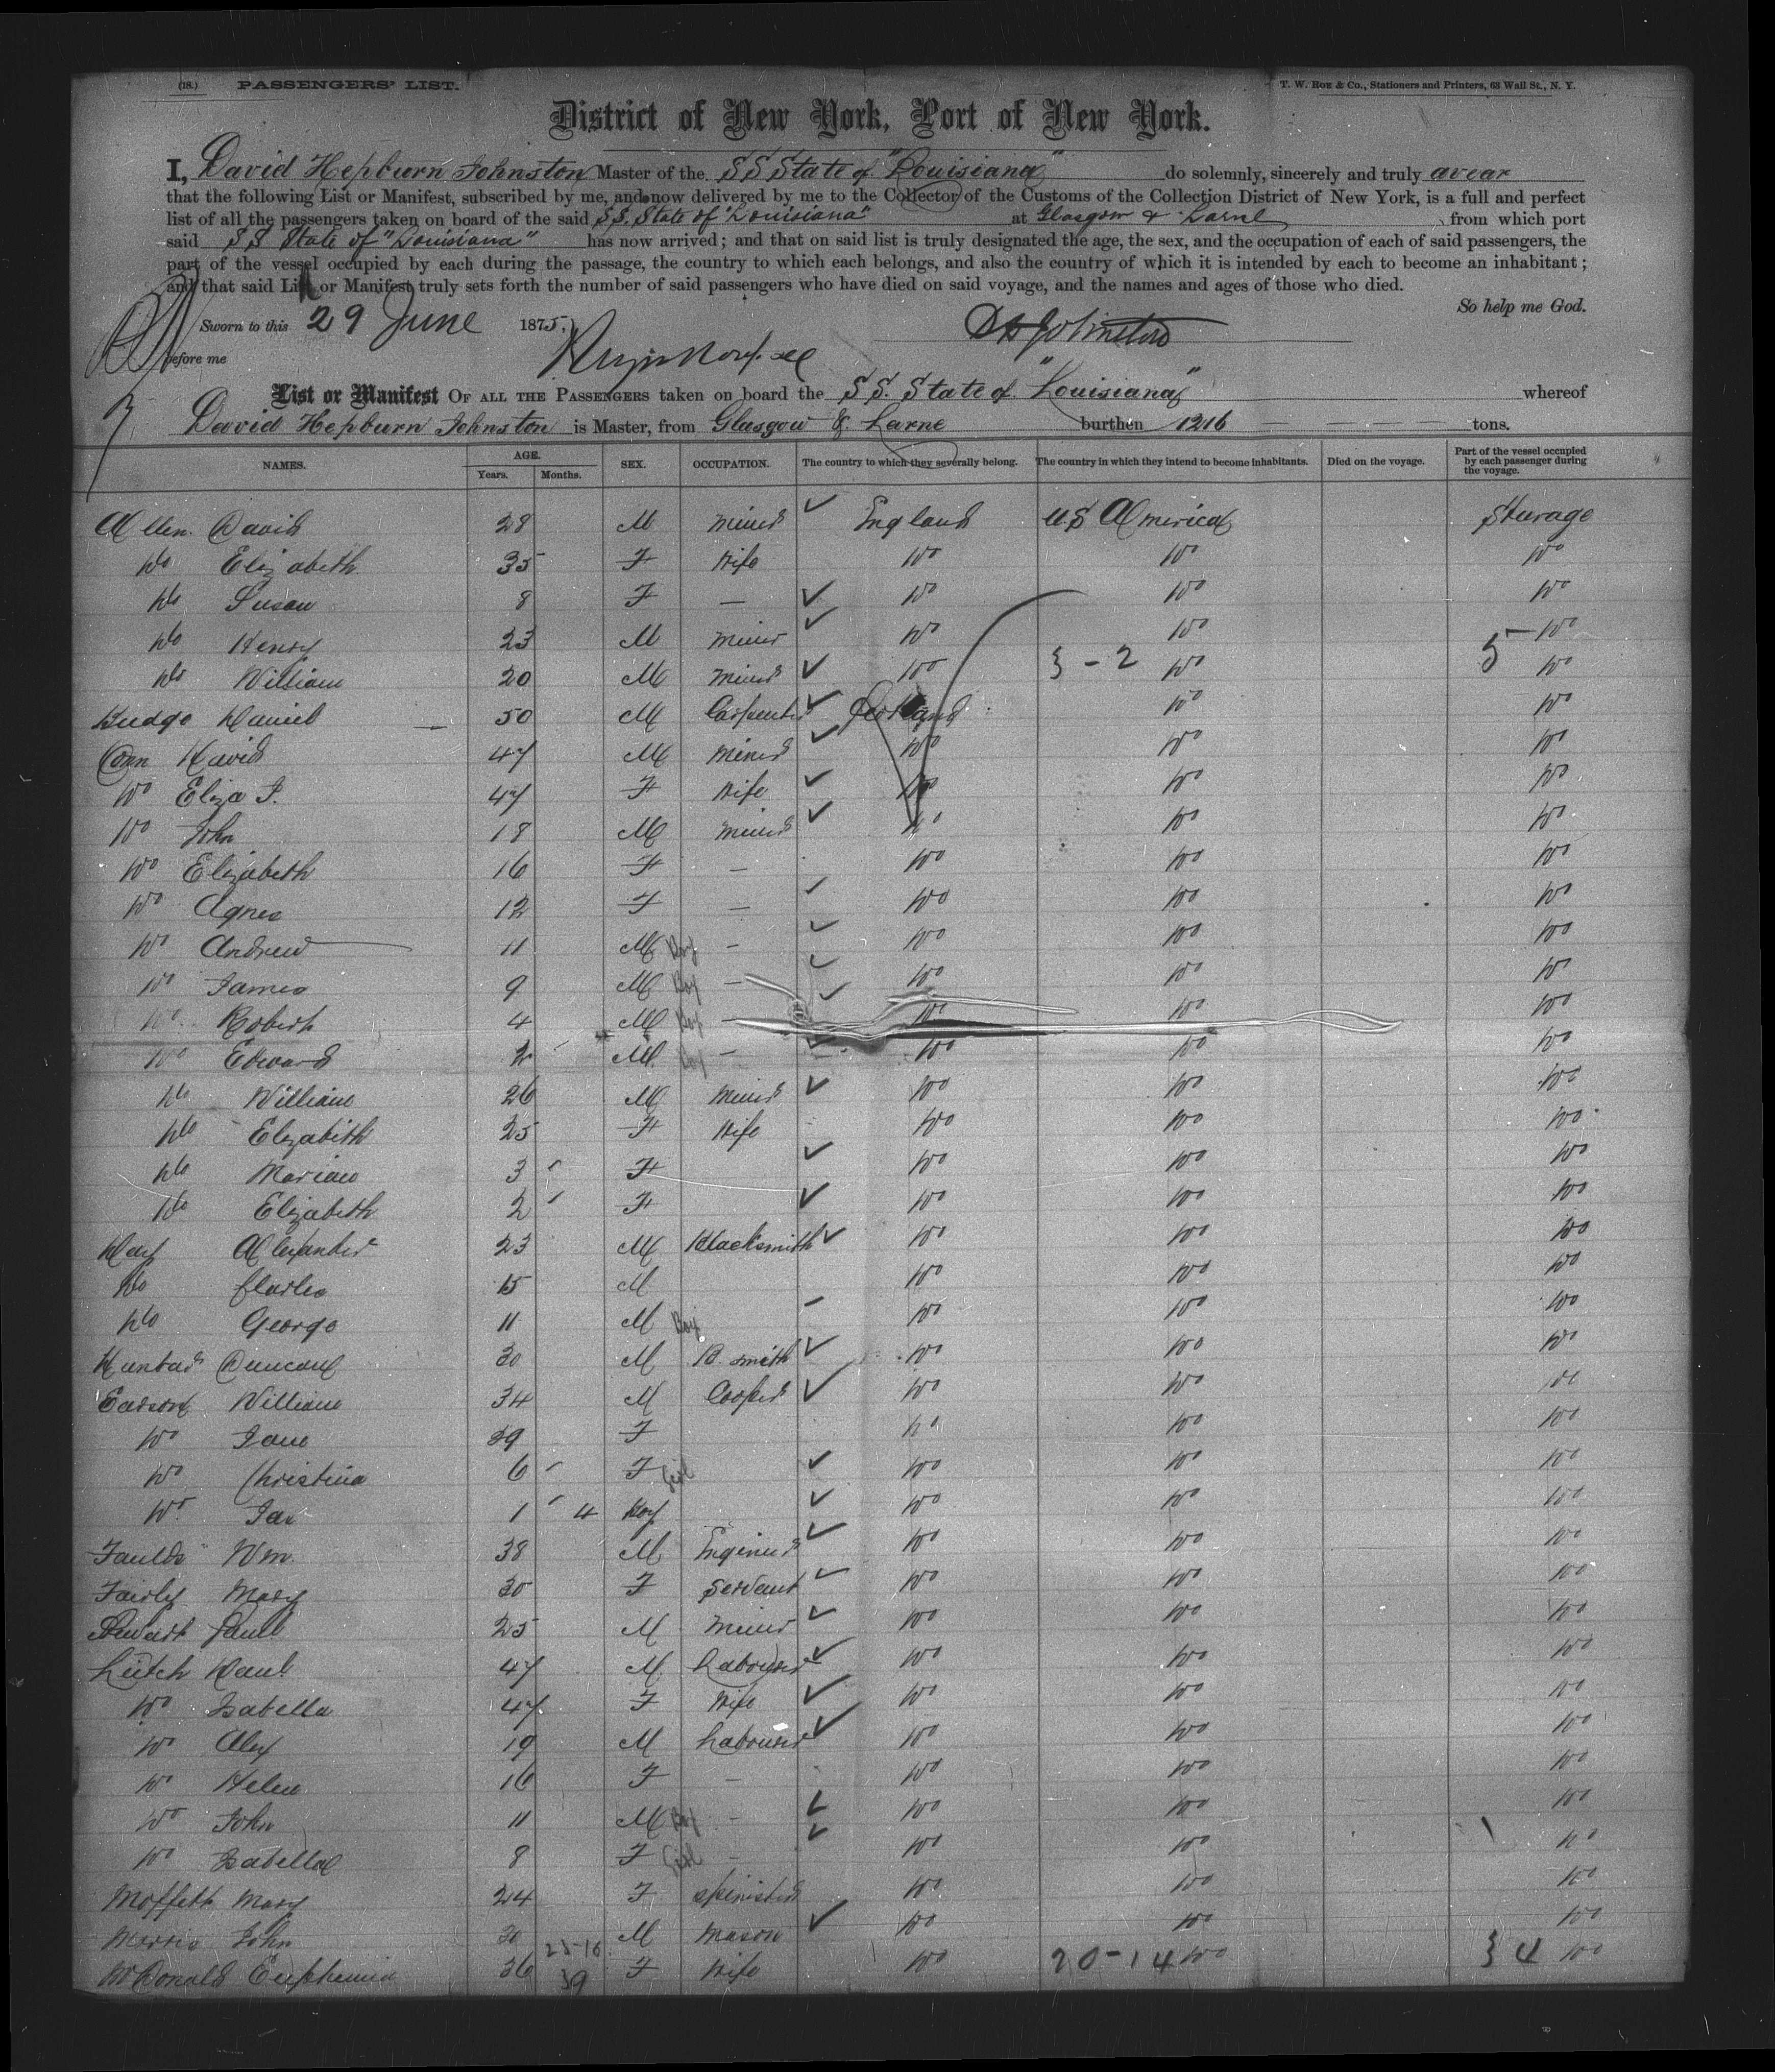 (18.) PASSENGERS' LIST. T. W. Roe & Co., Stationers and Printers, 63 Wall St., N. Y.
District of New York, Port of New York.
I, David Hepburn Johnston Master of the SS State of "Louisiana" do solemnly, sincerely and truly swear
that the following List or Manifest, subscribed by me, and now delivered by me to the Collector of the Customs of the Collection District of New York, is a full and perfect
list of all the passengers taken on board of the said S.S. State of "Louisiana" at Glasgow & Larne from which port
said SS State of "Louisiana" has now arrived; and that on said list is truly designated the age, the sex, and the occupation of each of said passengers, the
part of the vessel occupied by each during the passage, the country to which each belongs, and also the country of which it is intended by each to become an inhabitant;
and that said List or Manifest truly sets forth the number of said passengers who have died on said voyage, and the names and ages of those who died.
So help me God.
Sworn to this 29 June 1875. DH Johnston
before me
List or Manifest OF ALL THE PASSENGERS taken on board the SS. State of "Louisiana" whereof
David Hepburn Johnston is Master, from Glasgow & Larne burthen 1216 tons.
NAMES. AGE. Years. Months. SEX. OCCUPATION. The country to which they severally belong. The country in which they intend to become inhabitants. Died on the voyage. Part of the vessel occupied by each passenger during the voyage.
Allen David 28 M Miner England US America Sturage
Do Elizabeth 35 F Wife Do Do Do
Do Susan 8 F — Do Do Do
Do Henry 23 M Miner Do Do Do
Do William 20 M Miner Do } - 2 Do 5 Do
Budge Daniel 50 M Carpenter Scotland Do Do
Conn David 47 M Miner Do Do Do
Do Eliza F. 47 F Wife Do Do Do
Do John 18 M Miner Do Do Do
Do Elizabeth 16 F — Do Do Do
Do Agnes 12 F — Do Do Do
Do Andrew 11 M Boy — Do Do Do
Do James 9 M Boy — Do Do Do
Do Robert 4 M Boy — Do Do Do
Do Edward 2 M Boy — Do Do Do
Do William 26 M Miner Do Do Do
Do Elizabeth 25 F Wife Do Do Do
Do Marian 3 F Do Do Do
Do Elizabeth 2 F Do Do Do
Day Alexander 23 M Blacksmith Do Do Do
Do Charles 15 M Do Do Do
Do George 11 M Boy Do Do Do
Duncan 30 M B. smith Do Do Do
Eadson William 34 M Cooper Do Do Do
Do Jane 39 F Do Do Do
Do Christina 6 F Girl Do Do Do
Do Jas 1 4 Boy Do Do Do
Faulds Wm. 38 M Engineer Do Do Do
Fairly Mary 30 F Servant Do Do Do
Stewart 25 M Miner Do Do Do
Leitch Danl. 47 M Labourer Do Do Do
Do Isabella 47 F Wife Do Do Do
Do Alex 19 M Labourer Do Do Do
Do Helen 16 F — Do Do Do
Do John 11 M Boy — Do Do Do
Do Isabella 8 F Girl — Do Do Do
Moffett Mary 24 F Spinster Do Do Do
Morris John 30 M Mason Do Do Do
McDonald Euphemia 36 F Wife Do 20-14 Do } 4 Do